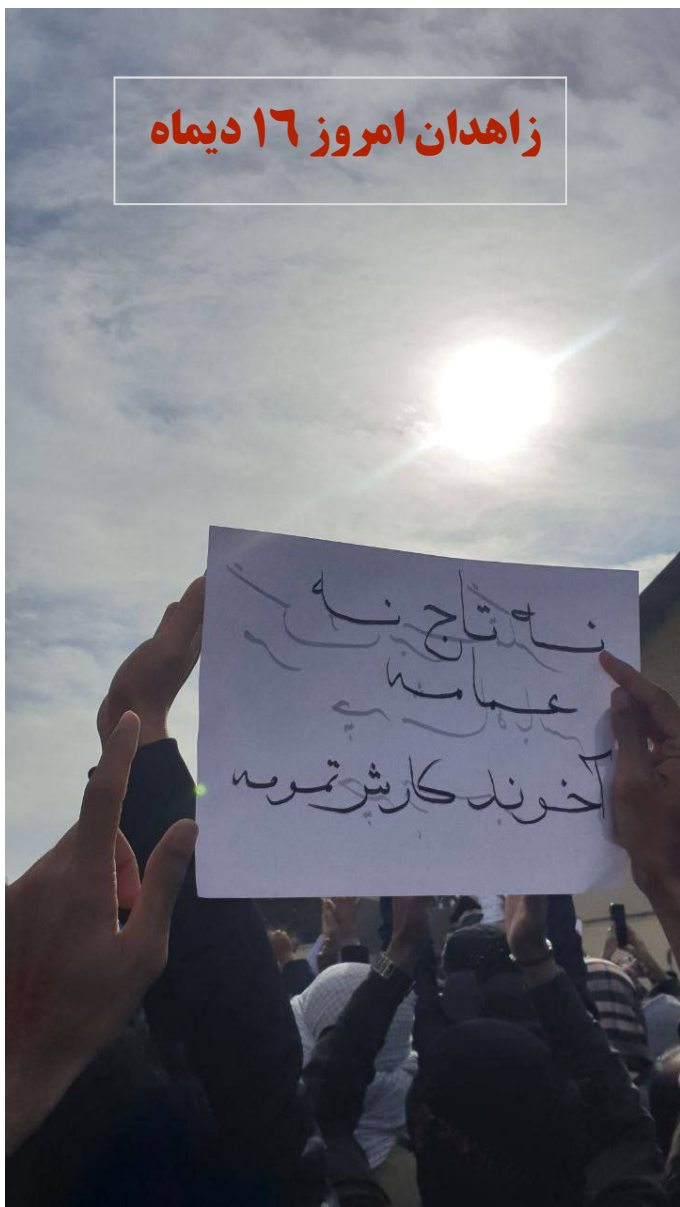 زاهدان امروز ۱۶ دیماه
نه تاج نه
عمامه
آخوند کارش تمومه